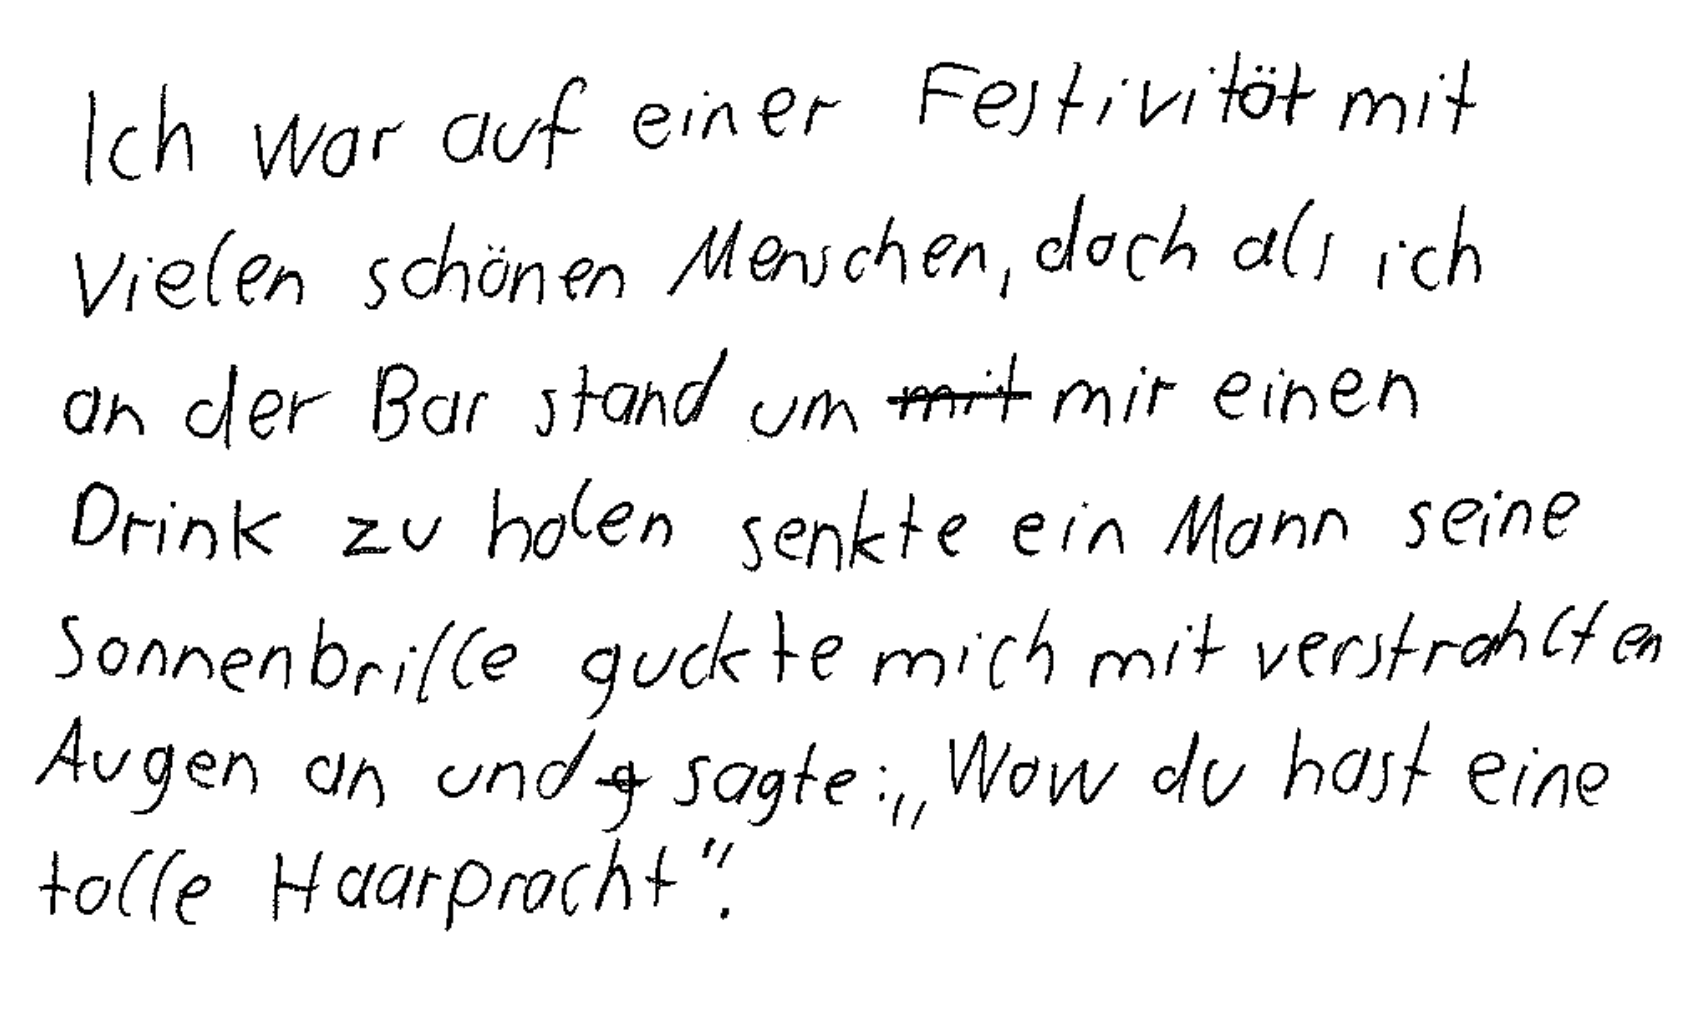 Ich war auf einer Festivität mit
vielen schönen Menschen, doch als ich
an der Bar stand um ~~mit~~ mir einen
Drink zu holen senkte ein Mann seine
Sonnenbrille guckte mich mit verstrahlten
Augen an und ~~g~~ sagte: „Wow du hast eine
tolle Haarpracht".